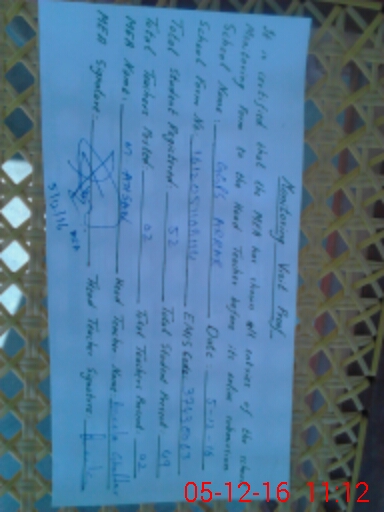 Monitoring Visit Proof
It is certified that the MEA has shown all entries of the school
Monitoring Form to the Head Teacher before its online submission
School Name: GGPS Date 5-12-16
School Form No EMIS Code
Total Student Registered: 52 Total Student Present 49
Total Teachers Posted 02 Total Teachers Present 02
MEA Name: Head Teacher Name
MEA Signature Head Teacher Signature
5/12/16 MEA
05-12-16 11:12